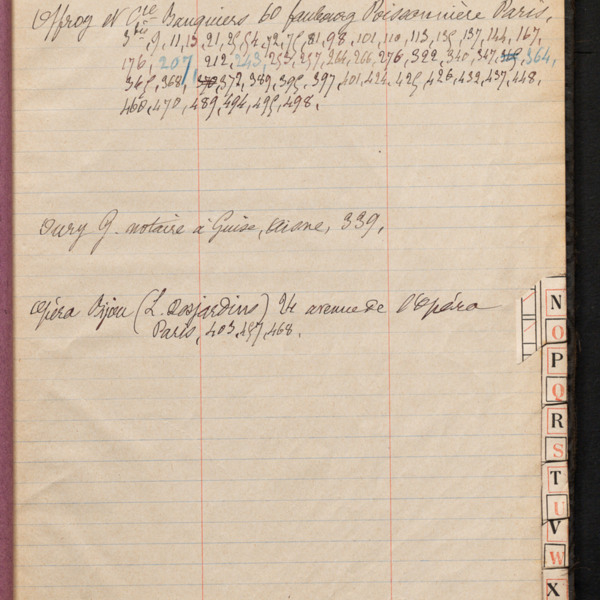 Offroy et Cie Banquiers 60 faubourg Poissonnière Paris,
3 bis, 9, 11, 13, 21, 35, 54, 72, 75, 81, 98, 101, 110, 113, 135, 137, 144, 167,
176, 207, 212, 243, 253, 257, 264, 266, 276, 322, 340, 347, 364,
365, 368, 372, 389, 395, 397, 401, 424, 425, 426, 432, 437, 448,
460, 470, 489, 494, 495, 498.
Oury G. notaire à Guise, Aisne, 339,
Opéra Bijou (L. Desjardins) 24 avenue de l'Opéra
Paris, 403, 457, 468.
N
O
P
Q
R
S
T
U
V
W
X